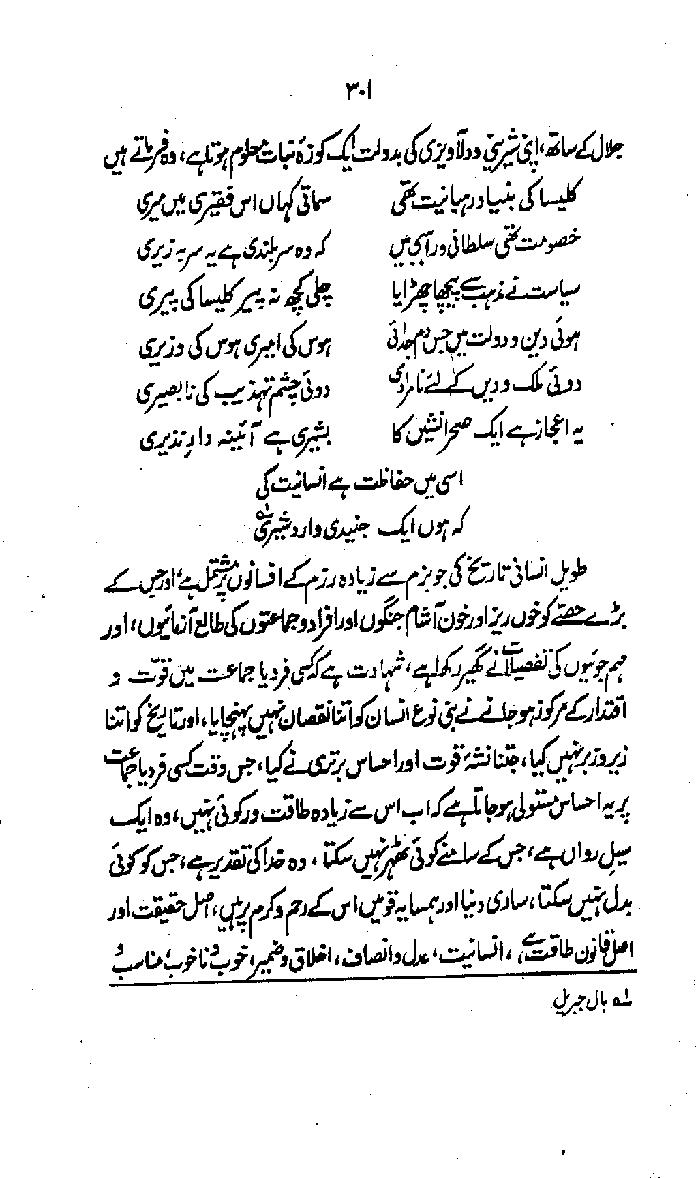 ۳۰۱
جلال کے ساتھ، اپنی شیرینی و دلآویزی کی بدولت ایک کوزۂ نبات معلوم ہوتا ہے، وہ فرماتے ہیں
کلیسا کی بنیاد رہبانیت تھی سماتی کہاں اس فقیری میں میری
خصومت تھی سلطانی و راہبی میں کہ وہ سربلندی ہے یہ سربزیری
سیاست نے مذہب سے پیچھا چھڑایا چلی کچھ نہ پیر کلیسا کی پیری
ہوئی دین و دولت میں جس دم جدائی ہوس کی امیری ہوس کی وزیری
دوئی ملک و دیں کے لئے نامرادی دوئی چشم تہذیب کی نابصیری
یہ اعجاز ہے ایک صحرا نشیں کا بشیری ہے آئینہ دارِ نذیری
اسی میں حفاظت ہے انسانیت کی
کہ ہوں ایک جنیدی و اردشیری لہ
طویل انسانی تاریخ کی جو بزم سے زیادہ رزم کے افسانوں پر مشتمل ہے، اور جس کے
بڑے حصے کو خوں ریز اور خون آشام جنگوں اور افراد و جماعتوں کی طالع آزمائیوں، اور
مہم جوئیوں کی تفصیلات نے گھیر رکھا ہے، شہادت ہے کہ کسی فرد یا جماعت میں قوت و
اقتدار کے مرکوز ہو جانے نے بنی نوع انسان کو اتنا نقصان نہیں پہنچایا، اور تاریخ کو اتنا
زیر و زبر نہیں کیا، جتنا نشۂ قوت اور احساس برتری نے کیا، جس وقت کسی فرد یا جماعت
پر یہ احساس مستولی ہو جاتا ہے کہ اب اس سے زیادہ طاقت ور کوئی نہیں، وہ ایک
سیلِ رواں ہے، جس کے سامنے کوئی ٹھہر نہیں سکتا، وہ خدا کی تقدیر ہے، جس کو کوئی
بدل نہیں سکتا، ساری دنیا اور ہمسایہ قومیں اس کے رحم و کرم پر ہیں، اصل حقیقت اور
اصل قانون طاقت ہے، انسانیت، عدل و انصاف، اخلاق و ضمیر، خوب و ناخوب، مناسب و
لہ بال جبریل